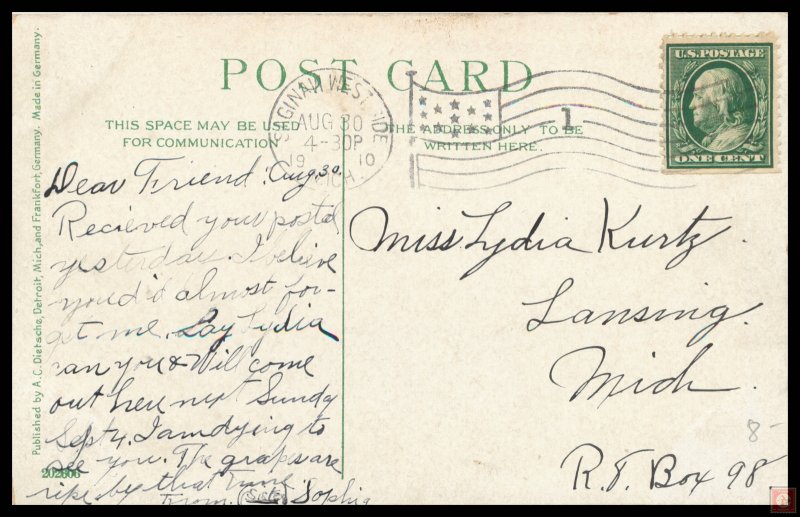 POST CARD
THIS SPACE MAY BE USED
FOR COMMUNICATION
THE ADDRESS ONLY TO BE
WRITTEN HERE.
SAGINAW WEST SIDE
AUG 30
4-30P
1910
MICH.
1
U.S. POSTAGE
ONE CENT
Dear Friend: Aug 30.
Recieved your postal
yesterday. I beleive
you'd almost for-
get me. Say Lydia
can you & Will come
out here next Sunday
Sept 4. I am dying to
see you. The grapes are
ripe by that time
From Sister Sophia
Miss Lydia Kurtz.
Lansing.
Mich.
R.F. Box 98
8-
Published by A.C. Dietsche, Detroit, Mich., and Frankfort, Germany. Made in Germany.
202606